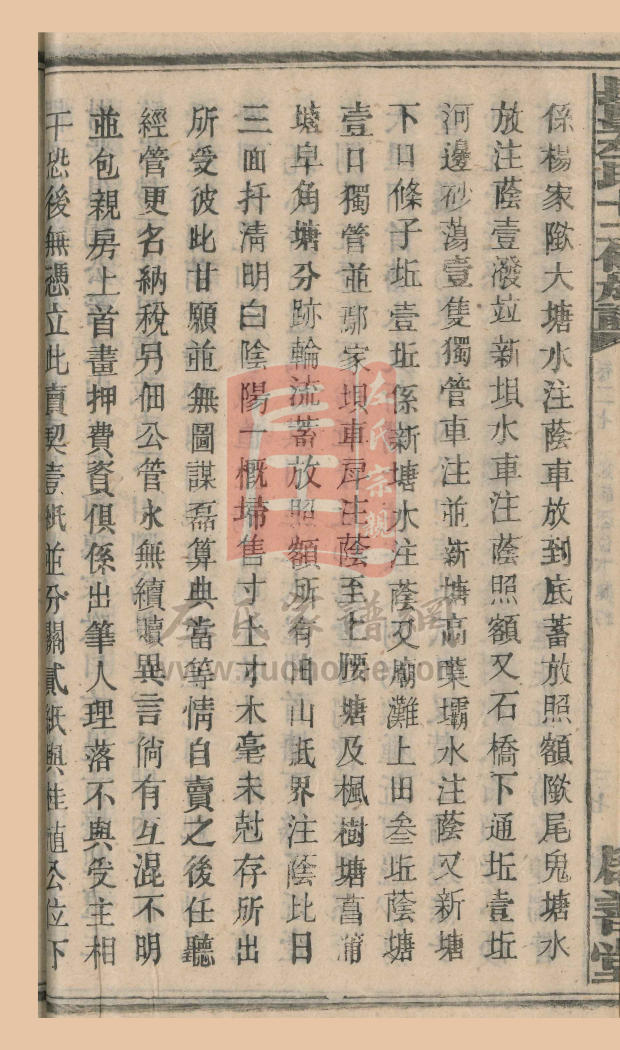 係楊家隞大塘水注蔭車放到底蓄放照額隞尾鬼塘水
放注蔭壹潑竝新垻水車注蔭照額又石橋下通坵壹坵
河邊砂蕩壹隻獨管車注並新塘高葉壩水注蔭又新塘
下口條子坵壹坵係新塘水注蔭又廟灘上田叁坵蔭塘
壹口獨管並鄢家垻車戽注蔭至上腰塘及楓樹塘菖蒲
塘皁角塘分跡輪流蓄放照額所有田山坻界注蔭比日
三面扦清明白陰陽一概埽售寸土寸木毫未尅存所出
所受彼此甘願並無圖謀磊算典當等情自賣之後任聽
經管更名納稅另佃公管永無續贖異言倘有互混不明
並包親房上首畫押費資俱係出筆人理落不與受主相
干恐後無憑立此賣契壹紙並分關貳紙與桂植公位下
左氏宗親
左氏家譜網
www.zuohome.com